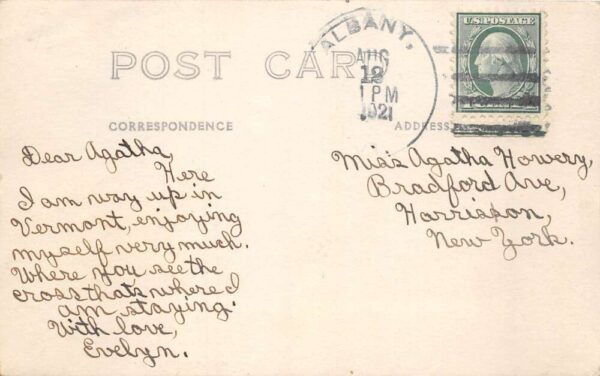 POST CARD
ALBANY,
AUG
12
1 PM
1921
U.S. POSTAGE
CORRESPONDENCE
ADDRESS
Dear Agatha,
Here
I am way up in
Vermont, enjoying
myself very much.
Where you see the
cross thats where I
am staying.
With love,
Evelyn.
Miss Agatha Howery,
Bradford Ave,
Harrisson,
New York.